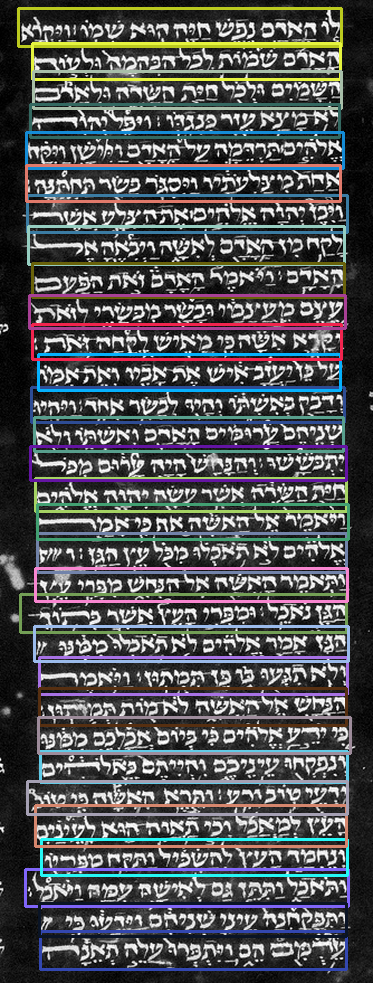 לו האדם נפש חיה הוא שמו ויקרא
האדם שמות לכל הבהמה ולעוף
השמים ולכל חית השדה ולאדם
לא מצא עזר כנגדו ויפל יהוה
אלהים תרדמה על האדם ויישן ויקח
אחת מצלעתיו ויסגר בשר תחתנה
ויבן יהוה אלהים את הצלע אשר
לקח מן האדם לאשה ויבאה אל
האדם ויאמר האדם זאת הפעם
עצם מעצמי ובשר מבשרי לזאת
יקרא אשה כי מאיש לקחה זאת
על כן יעזב איש את אביו ואת אמו
ודבק באשתו והיו לבשר אחד ויהיו
שניהם ערומים האדם ואשתו ולא
יתבששו והנחש היה ערום מכל
חית השדה אשר עשה יהוה אלהים
ויאמר אל האשה אף כי אמר
אלהים לא תאכלו מכל עץ הגן
ותאמר האשה אל הנחש מפרי עץ
הגן נאכל ומפרי העץ אשר בתוך
הגן אמר אלהים לא תאכלו ממנו
ולא תגעו בו פן תמתון ויאמר
הנחש אל האשה לא מות תמתון
כי ידע אלהים כי ביום אכלכם ממנו
ונפקחו עיניכם והייתם כאלהים
ידעי טוב ורע ותרא האשה כי טוב
העץ למאכל וכי תאוה הוא לעינים
ונחמד העץ להשכיל ותקח מפריו
ותאכל ותתן גם לאישה עמה ויאכל
ותפקחנה עיני שניהם וידעו כי
עירמם הם ויתפרו עלה תאנה